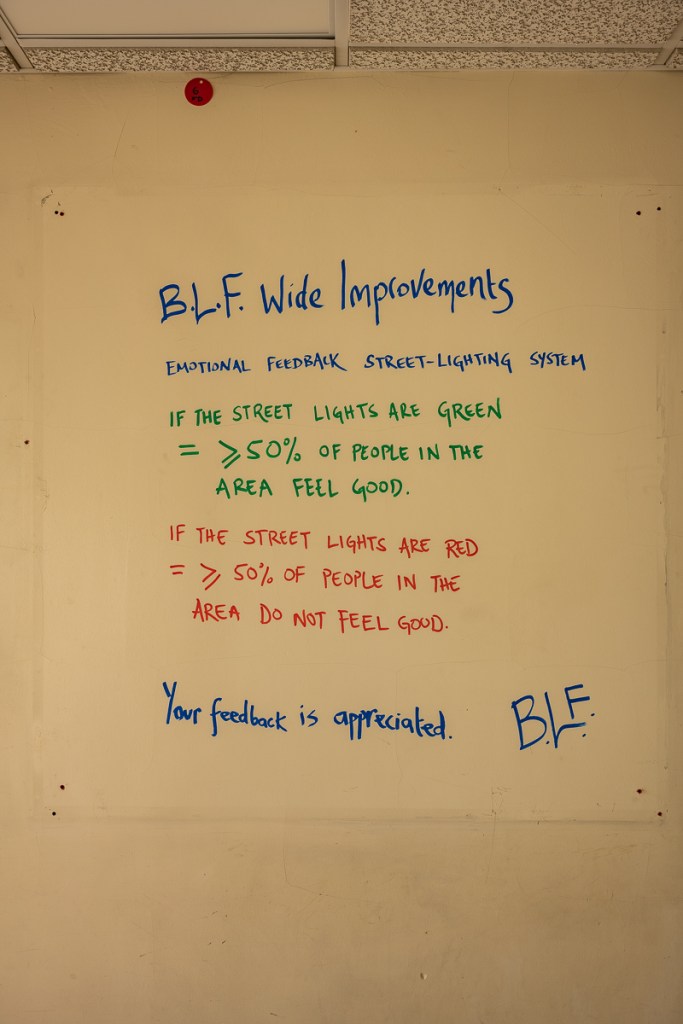 B.L.F. Wide Improvements
EMOTIONAL FEEDBACK STREET-LIGHTING SYSTEM
IF THE STREET LIGHTS ARE GREEN
= ⩾50% OF PEOPLE IN THE
AREA FEEL GOOD.
IF THE STREET LIGHTS ARE RED
= ⩾ 50% OF PEOPLE IN THE
AREA DO NOT FEEL GOOD.
Your feedback is appreciated.
B.L.F.